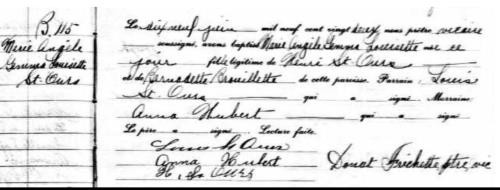 B. 115
Marie Angèle
Gemma Louisette
St. Ours
Le dix neuf juin mil neuf cent vingt deux, nous prêtre, vicaire
soussigné, avons baptisé Marie Angèle Gemma Louisette née ce
jour fille légitime de Henri St. Ours
et de Bernadette Brouillette de cette paroisse. Parrain, Louis
St. Ours qui a signé. Marraine
Anna Hubert qui a signé.
Le père a signé. Lecture faite.
Louis St Ours
Anna Hubert
H. St Ours
Donat Frichette ptre, vic